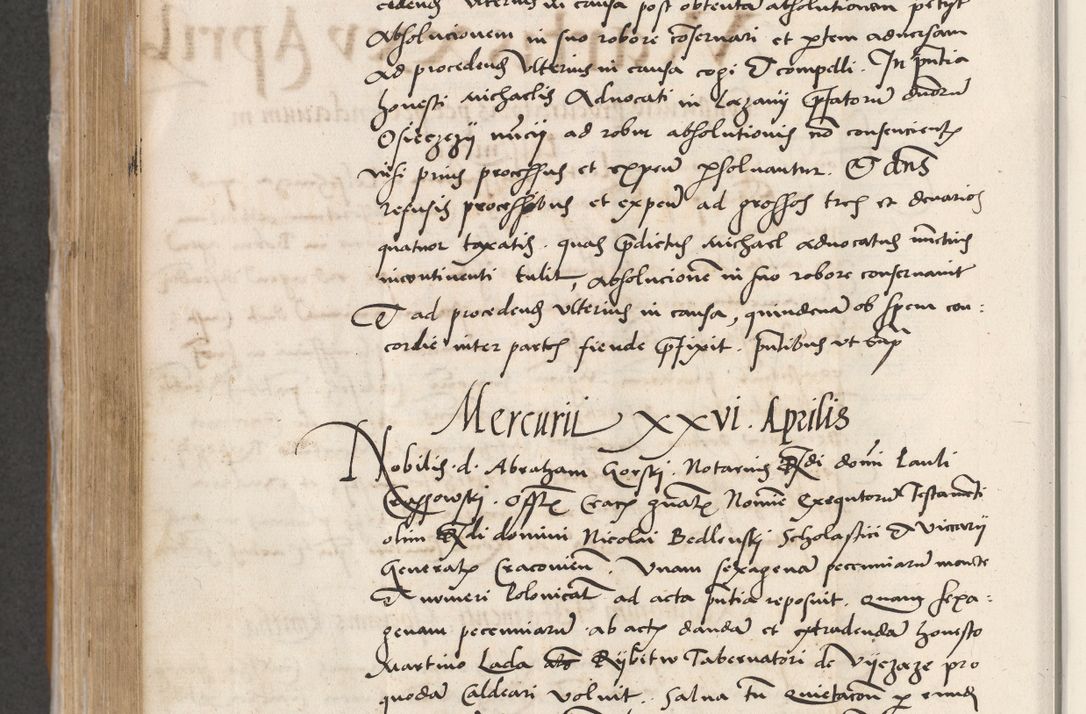 cedend ulterius in causa post obtentam absolutionem petiit
Absolucionem in suo robore conservari et partem adversam
Ad procedend ulterius in causa cogi et compelli. In pntia
honesti Michaelis Advocati in Lazany prefatorum
nuncii ad robur absolutionis non consencient
nisi prius processus et expen persolvantur. Et dns
refusis processibus et expen ad grossos tres et denarios
quatuor taxatis. quas predictus Michael advocatus nunctius
incontinenti tulit, Absolucionem in suo robore conservavit
Et ad procedend ulterius in causa, quindenam ob spem con:
cordie inter partes fiende prefixit. pntibus ut supra
Mercurii XXVI. Aprilis
Nobilis .d. Abraham Gorski. Notarius Rndi domini Pauli
offlis Crac gnalis Nomine exequtorum Testamenti
olim Rndi domini Nicolai Bedlenskj Scholastici et Viccarii
Generalis Cracovien. Unam sexagenam pecuniarum monete
Et numeri Polonicalis ad acta pntia reposuit. Quam sexa:
genam pecuniarum ab actis dandam et extradendam honesto
Martino Lada als Rybitw Tabernatori de pro
quodam Caldeari voluit. Salva tn Quietacone per eund